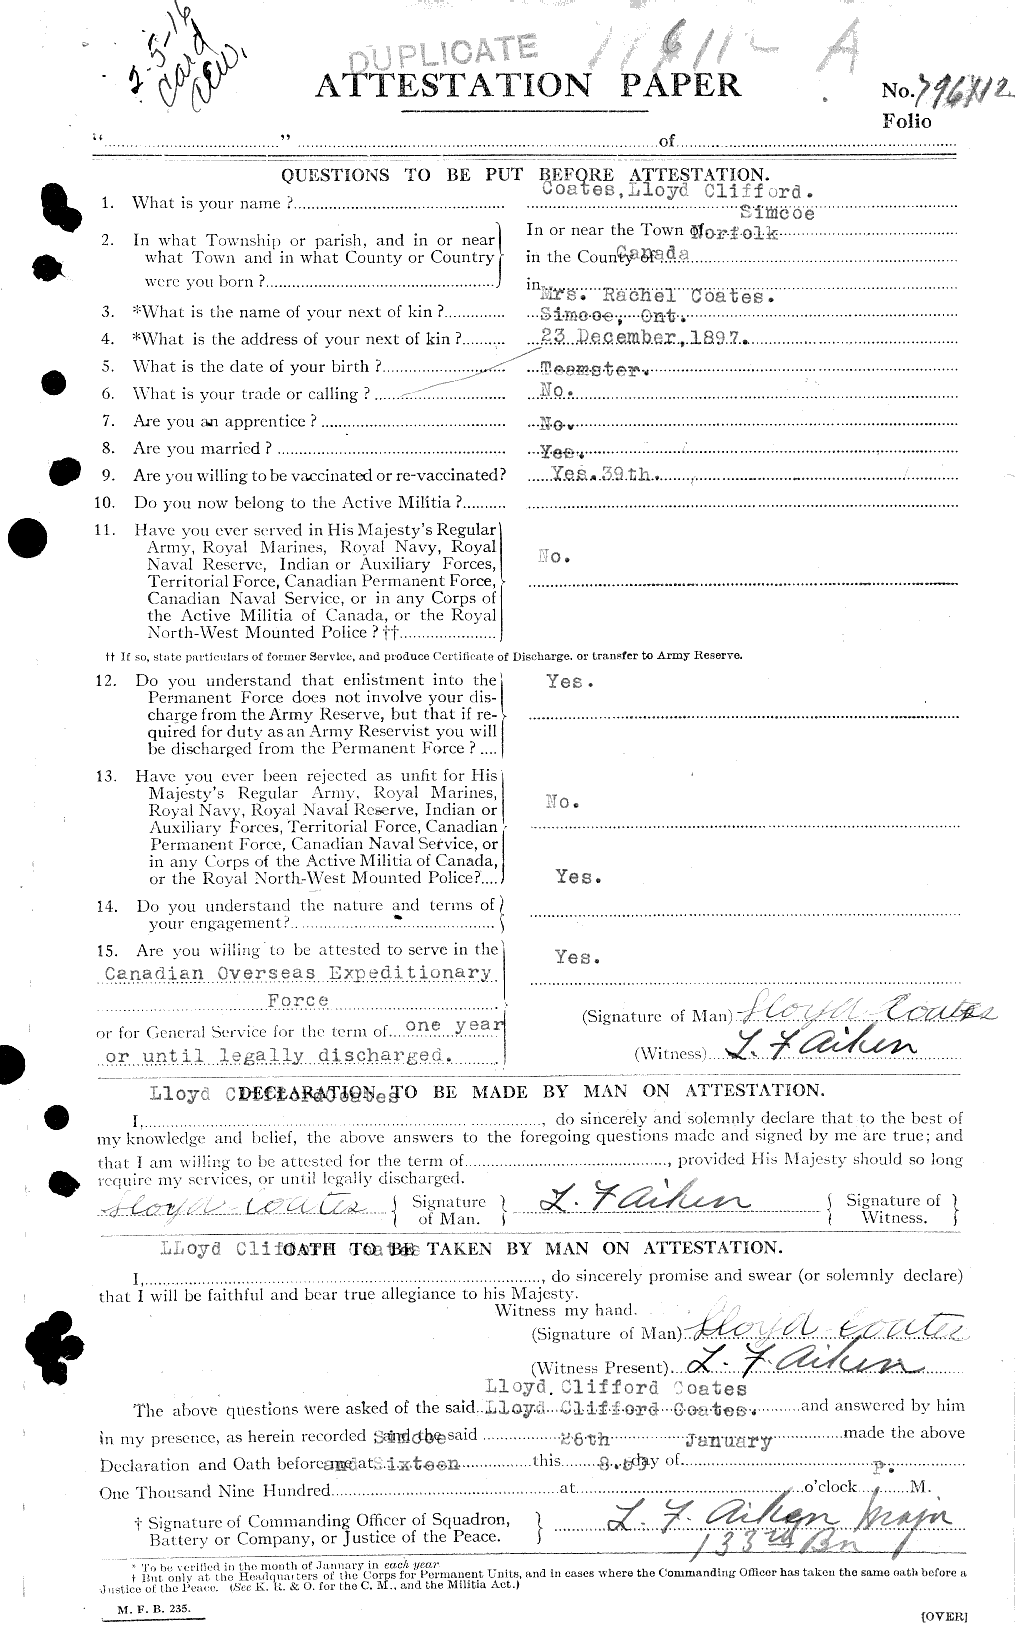 2-5-16
Card
DUPLICATE
A
ATTESTATION PAPER
No.
Folio
“ ” of
QUESTIONS TO BE PUT BEFORE ATTESTATION.
1. What is your name ? Coates, Lloyd Clifford.
Simcoe
2. In what Township or parish, and in or near In or near the Town of Norfolk
what Town and in what County or Country in the County of Canada
were you born ? in
3. *What is the name of your next of kin ? Mrs. Rachel Coates.
4. *What is the address of your next of kin ? Simcoe, Ont.
5. What is the date of your birth ? 23 December, 1897.
6. What is your trade or calling ? Teamster.
7. Are you an apprentice ? No.
8. Are you married ? No.
9. Are you willing to be vaccinated or re-vaccinated? Yes.
10. Do you now belong to the Active Militia ? Yes. 39th.
11. Have you ever served in His Majesty's Regular
Army, Royal Marines, Royal Navy, Royal
Naval Reserve, Indian or Auxiliary Forces, No.
Territorial Force, Canadian Permanent Force,
Canadian Naval Service, or in any Corps of
the Active Militia of Canada, or the Royal
North-West Mounted Police ? ††
†† If so, state particulars of former Service, and produce Certificate of Discharge, or transfer to Army Reserve.
12. Do you understand that enlistment into the Yes.
Permanent Force does not involve your dis-
charge from the Army Reserve, but that if re-
quired for duty as an Army Reservist you will
be discharged from the Permanent Force ?
13. Have you ever been rejected as unfit for His
Majesty's Regular Army, Royal Marines,
Royal Navy, Royal Naval Reserve, Indian or No.
Auxiliary Forces, Territorial Force, Canadian
Permanent Force, Canadian Naval Service, or
in any Corps of the Active Militia of Canada,
or the Royal North-West Mounted Police?
14. Do you understand the nature and terms of Yes.
your engagement?
15. Are you willing to be attested to serve in the Yes.
Canadian Overseas Expeditionary
Force
(Signature of Man) Lloyd Coates
or for General Service for the term of one year
or until legally discharged.
(Witness) L. F Aiken
DECLARATION TO BE MADE BY MAN ON ATTESTATION.
I, Lloyd Clifford Coates, do sincerely and solemnly declare that to the best of
my knowledge and belief, the above answers to the foregoing questions made and signed by me are true; and
that I am willing to be attested for the term of , provided His Majesty should so long
require my services, or until legally discharged.
Lloyd Coates { Signature of Man. } L. F Aiken { Signature of Witness. }
OATH TO BE TAKEN BY MAN ON ATTESTATION.
I, LLoyd Clifford Coates, do sincerely promise and swear (or solemnly declare)
that I will be faithful and bear true allegiance to his Majesty.
Witness my hand.
(Signature of Man) Lloyd Coates
(Witness Present) L. F. Aiken
Lloyd Clifford Coates
The above questions were asked of the said Lloyd Clifford Coates. and answered by him
in my presence, as herein recorded ; and the said Simcoe 26th January made the above
Declaration and Oath before me at and Sixteen this day of p.
One Thousand Nine Hundred at o'clock M.
† Signature of Commanding Officer of Squadron,
Battery or Company, or Justice of the Peace. } L. F. Aiken Major
133rd Bn
* To be verified in the month of January in each year
† But only at the Headquarters of the Corps for Permanent Units, and in cases where the Commanding Officer has taken the same oath before a
Justice of the Peace. (See K. R. & O. for the C. M., and the Militia Act.)
M. F. B. 235.
[OVER]